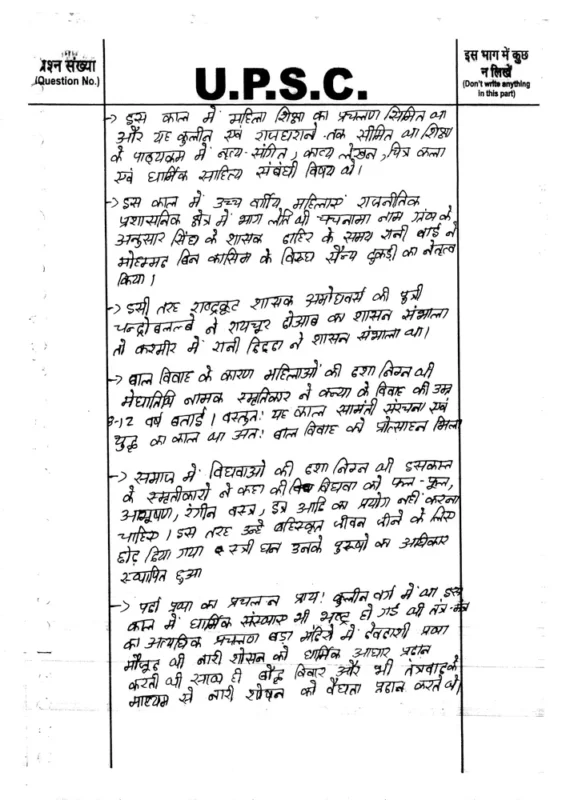 प्रश्न संख्या
(Question No.)
U.P.S.C.
इस भाग में कुछ
न लिखें
(Don't write anything
in this part)
→ इस काल में महिला शिक्षा का प्रचलण सिमित था
और यह कुलीन एवं राजघराने तक सीमित था शिक्षा
के पाठ्यक्रम में नृत्य-संगित, काव्य लेखन, चित्र कला
एवं धार्मिक साहित्य संबंधी विषय थे।
→ इस काल में उच्च वर्गीय महिलाएं राजनीतिक
प्रशासनिक क्षेत्र में भाग लेति थी चचनामा नाम ग्रंथ के
अनुसार सिंध के शासक दाहिर के समय रानी बाई ने
मोहम्मद बिन कासिम के विरुध सैन्य टुकडी का नेतृत्व
किया।
→ इसी तरह राष्ट्रकुट शासक अमोघवर्स की पुत्री
चन्द्रोबलब्बे ने रायचूर दोआब का शासन संभाला
तो कश्मीर में रानी दिद्दा ने शासन संभाला था।
→ बाल विवाह के कारण महिलाओं की दशा निम्न थी
मेधातिथि नामक स्मृतिकार ने कन्या के विवाह की उम्र
8-12 वर्ष बताई। वस्तुतः यह काल सामंती संरचना एवं
युद्ध का काल था अतः बाल विवाह को प्रोत्साहन मिला
→ समाज में विधवाओं की दशा निम्न थी इसकाल
के स्मृतीकारो ने कहा की विधवा को फल-फुल,
आभुषण, रंगीन वस्त्र, इत्र आदि का प्रयोग नहीं करना
चाहिए। इस तरह उन्हे बहिस्कृत जीवन जीने के लिए
छोड़ दिया गया स्त्री धन उनके पुरुषो का अधिकार
स्थापित हुआ
→ पर्दा प्रथा का प्रचलन प्रायः कुलीन वर्ग में था इस
काल में धार्मिक संस्थाए भी भ्रष्ट हो गई थी तंत्र-मंत्र
का अत्यधिक प्रचलण बड़ा मंदिरो में देवदाशी प्रथा
मौजूद थी नारी शोसन को धार्मिक आधार प्रदान
करती थी साथ ही बौद्ध विहार और भी तंत्रवाद के
माध्यम से नारी शोषन को वैधता प्रदान करते थे।